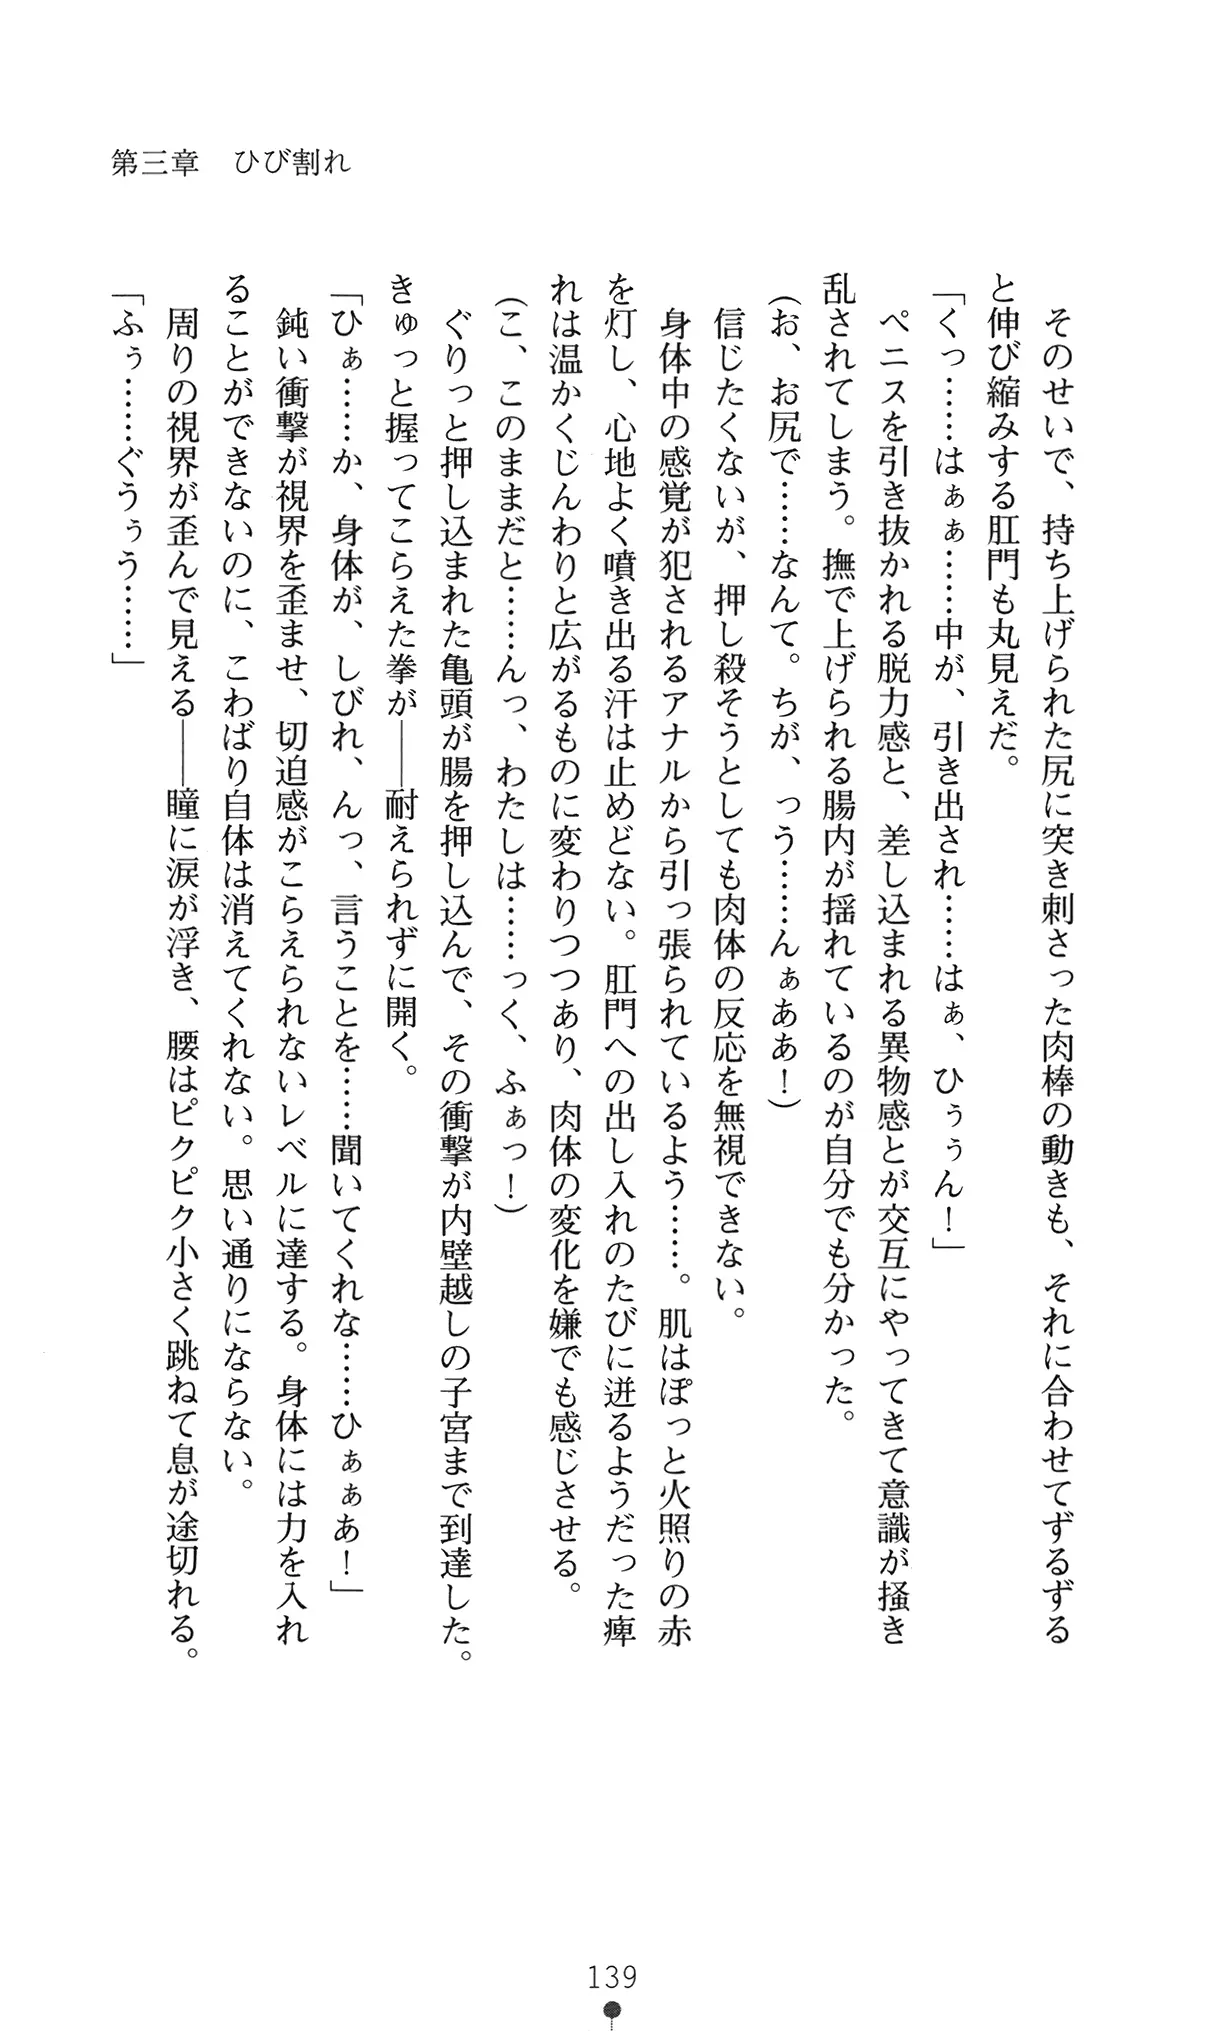 第三章　ひび割れ
そのせいで、持ち上げられた尻に突き刺さった肉棒の動きも、それに合わせてずるずる
と伸び縮みする肛門も丸見えだ。
「くっ……はぁぁ……中が、引き出され……はぁ、ひぅぅん！」
ペニスを引き抜かれる脱力感と、差し込まれる異物感とが交互にやってきて意識が掻き
乱されてしまう。撫で上げられる腸内が揺れているのが自分でも分かった。
（お、お尻で……なんて。ちが、っう……んぁああ！）
信じたくないが、押し殺そうとしても肉体の反応を無視できない。
身体中の感覚が犯されるアナルから引っ張られているよう……。肌はぽっと火照りの赤
を灯し、心地よく噴き出る汗は止めどない。肛門への出し入れのたびに迸るようだった痺
れは温かくじんわりと広がるものに変わりつつあり、肉体の変化を嫌でも感じさせる。
（こ、このままだと……んっ、わたしは……っく、ふぁっ！）
ぐりっと押し込まれた亀頭が腸を押し込んで、その衝撃が内壁越しの子宮まで到達した。
きゅっと握ってこらえた拳が――耐えられずに開く。
「ひぁ……か、身体が、しびれ、んっ、言うことを……聞いてくれな……ひぁぁあ！」
鈍い衝撃が視界を歪ませ、切迫感がこらえられないレベルに達する。身体には力を入れ
ることができないのに、こわばり自体は消えてくれない。思い通りにならない。
周りの視界が歪んで見える――瞳に涙が浮き、腰はピクピク小さく跳ねて息が途切れる。
「ふぅ……ぐうぅう……」
139